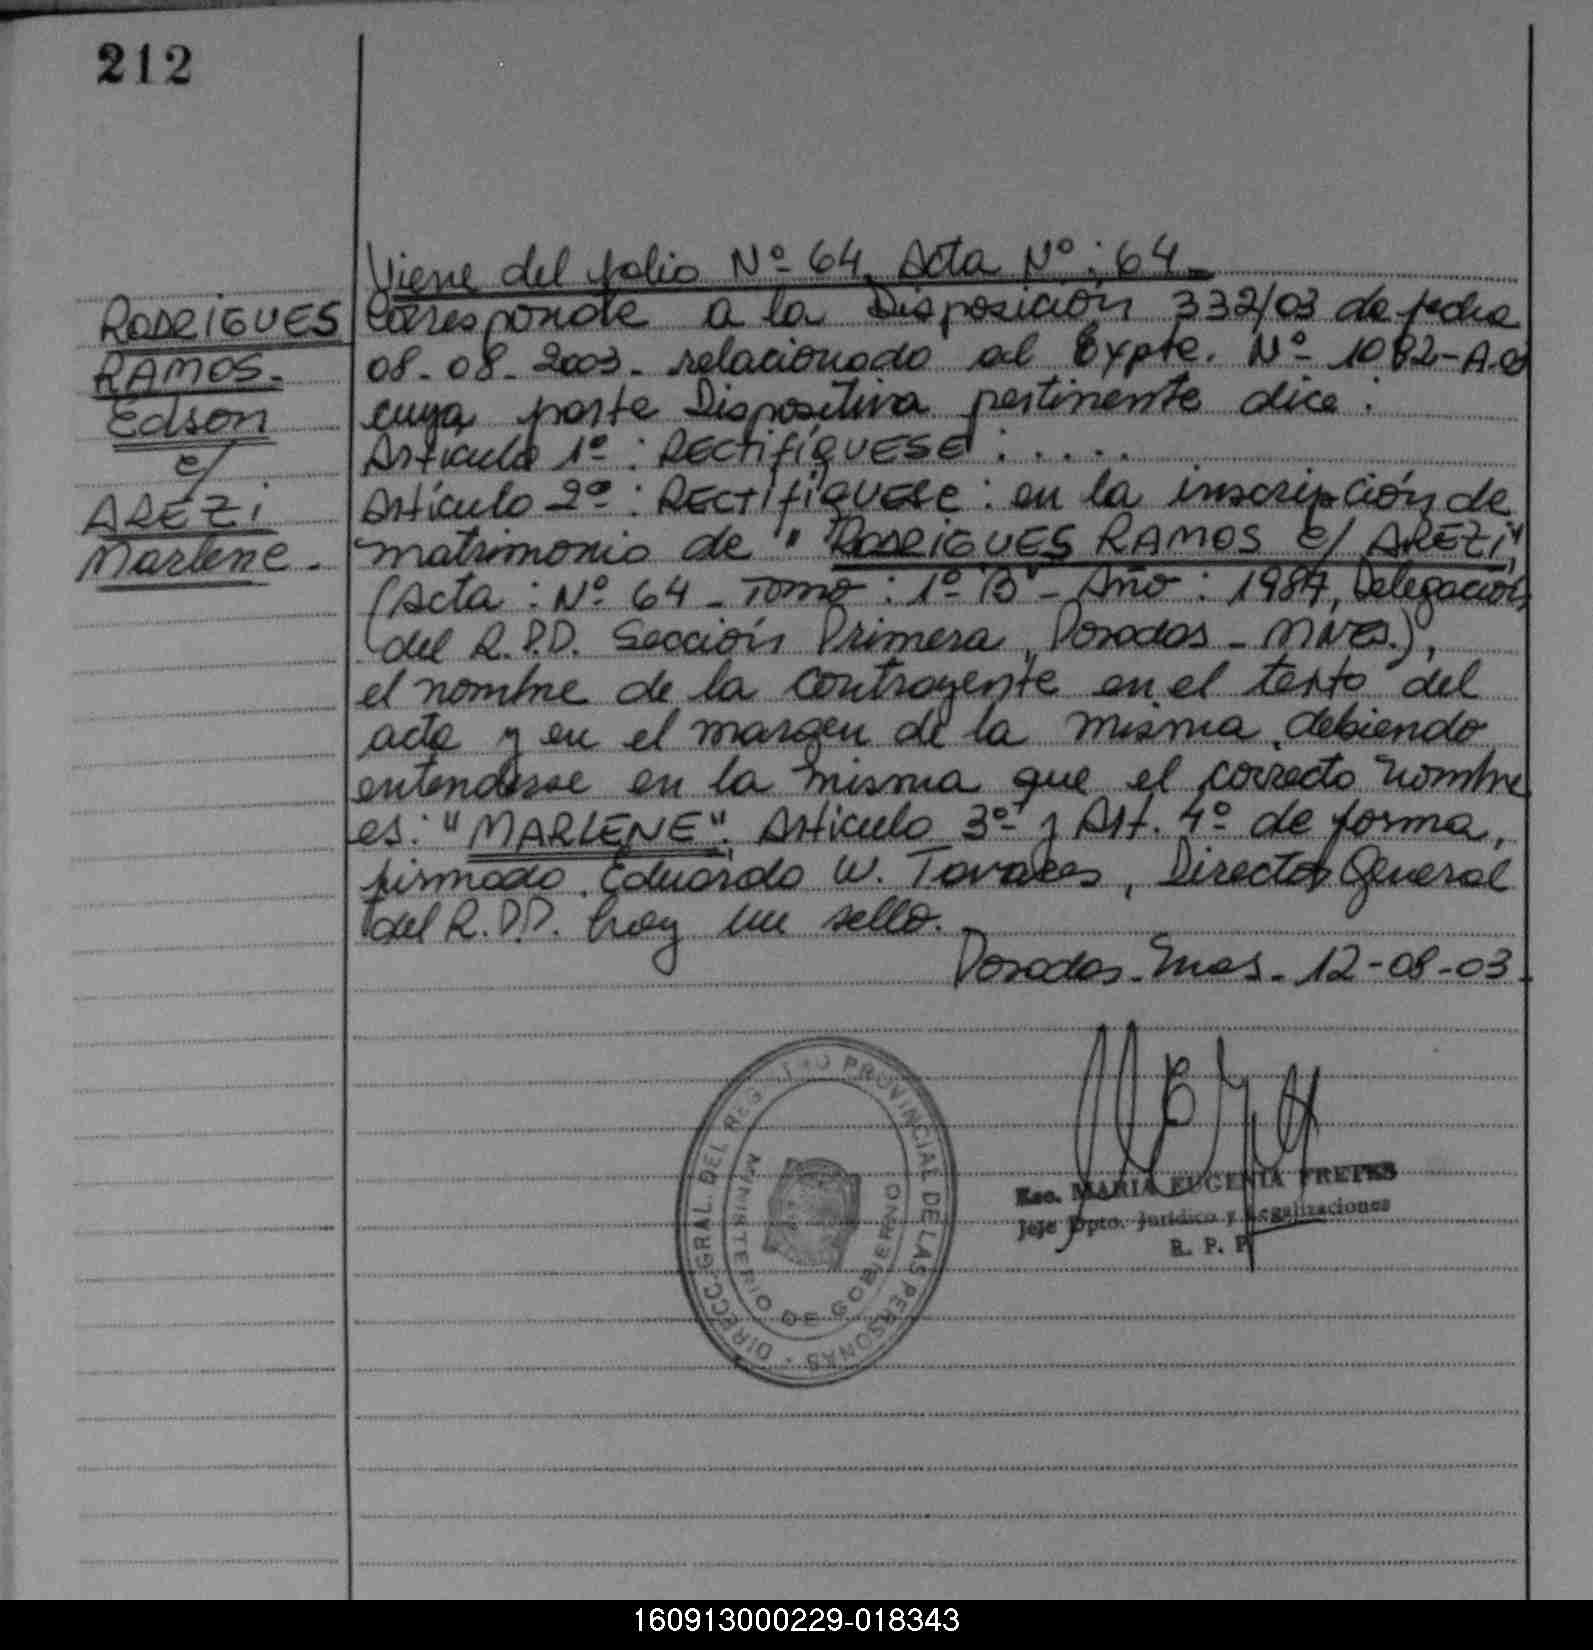 212
Viene del folio Nº 64. Acta Nº: 64-
RODRIGUES
RAMOS-
Edson
c/
AREZI
Marlene.
Corresponde a la Disposición 332/03 de fecha
08-08-2003- relacionado al Expte. Nº 1082-A-03
cuya parte Dispositiva pertinente dice:
Artículo 1º: RECTIFÍQUESE: . . . .
Artículo 2º: RECTIFÍQUESE: en la inscripción de
matrimonio de "RODRIGUES RAMOS c/ AREZI",
(Acta: Nº 64- Tomo: 1º "B"- Año: 1987, Delegación
del R.P.P. Sección Primera, Posadas- Mnes.),
el nombre de la contrayente en el texto del
acta y en el margen de la misma, debiendo
entenderse en la misma que el correcto nombre
es: "MARLENE". Artículo 3º y Art. 4º de forma,
firmado. Eduardo W. Tavares, Director General
del R.P.P. hay un sello.
Posadas- Mnes- 12-08-03.
DIRECC. GRAL. DEL REGISTRO PROVINCIAL DE LAS PERSONAS
MINISTERIO DE GOBIERNO
Esc. MARIA EUGENIA FRETES
Jefe Dpto. Jurídico y Legalizaciones
R. P. P.
160913000229-018343